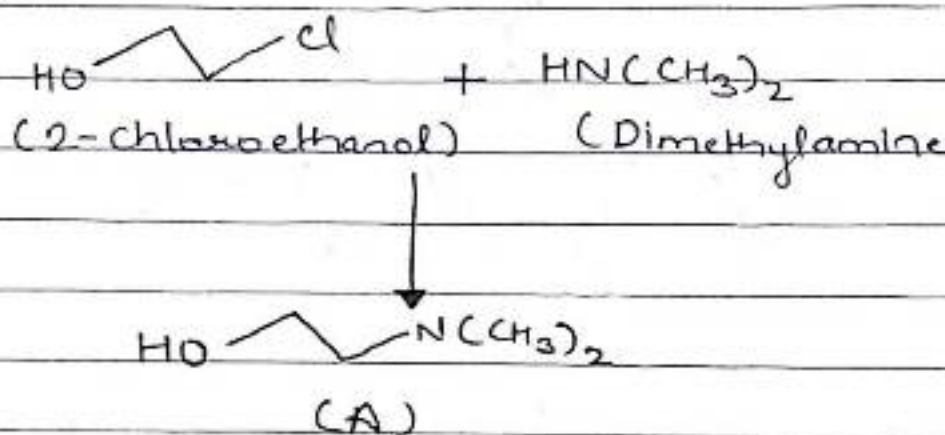 HO Cl + HN(CH3)2
(2-chloroethanol) (Dimethylamine
HO N(CH3)2
(A)